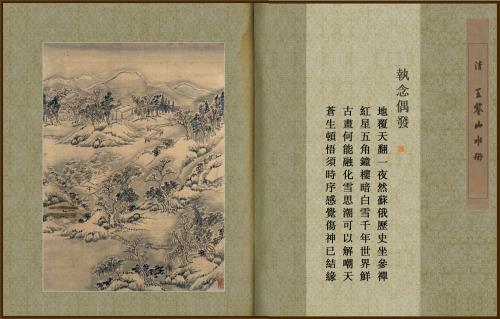 清 王 山水
執念偶發
地覆天翻一夜然蘇俄歷史坐參禪
紅星五角鐘樓暗白雪千年世界鮮
古畫何能融化雪思潮可以解嘲天
蒼生頓悟須時序感覺傷神已結緣